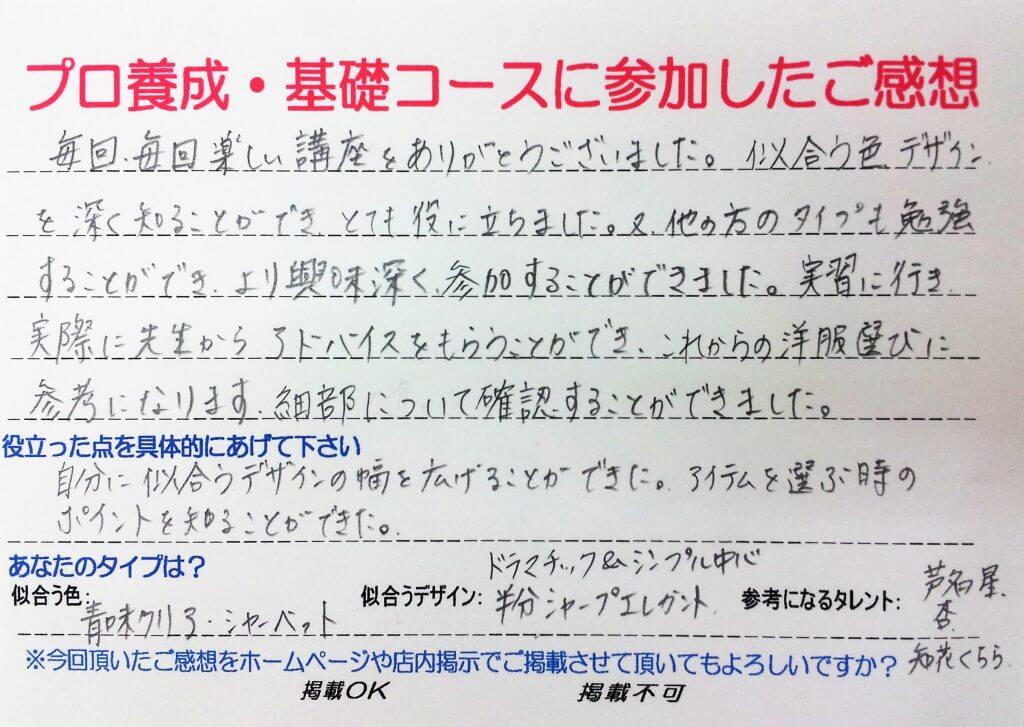 プロ養成・基礎コースに参加したご感想
毎回、毎回楽しい講座をありがとうございました。似合う色、デザイン
を深く知ることができ、とても役に立ちました。又、他の方のタイプも勉強
することができ、より興味深く、参加することができました。実習に行き、
実際に先生からアドバイスをもらうことができ、これからの洋服選びに
参考になります。細部について確認することができました。
役立った点を具体的にあげて下さい
自分に似合うデザインの幅を広げることができた。アイテムを選ぶ時の
ポイントを知ることができた。
あなたのタイプは?
似合う色: 青味クリア・シャーベット
似合うデザイン: ドラマチック&シンプル中心
半分シャープエレガント
参考になるタレント: 芦名星、
杏、
知花くらら
※今回頂いたご感想をホームページや店内掲示でご掲載させて頂いてもよろしいですか?
掲載OK 掲載不可